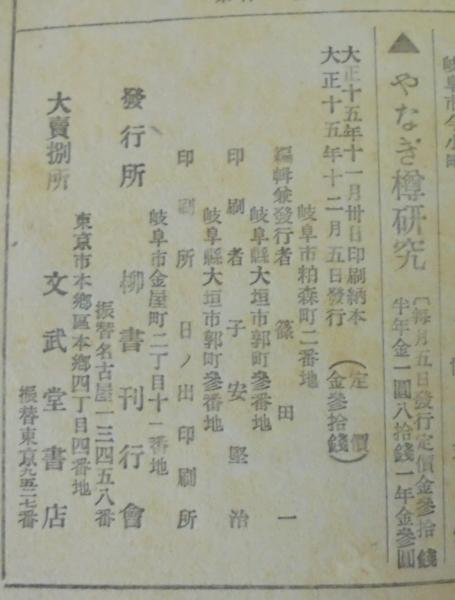 岐阜市今小町
▲やなぎ樽研究
〔毎月五日發行定價金參拾錢
半年金一圓八拾錢一年金參圓
大正十五年十一月卅日印刷納本
大正十五年十二月五日發行
(定價
金參拾錢)
岐阜市粕森町二番地
編輯兼發行者 篠田一
岐阜縣大垣市郭町參番地
印刷者 子安堅治
岐阜縣大垣市郭町參番地
印刷所 日ノ出印刷所
岐阜市金屋町二丁目十一番地
發行所 柳書刊行會
振替名古屋一三四五八番
東京市本鄕區本鄕四丁目四番地
大賣捌所 文武堂書店
振替東京九五二七番